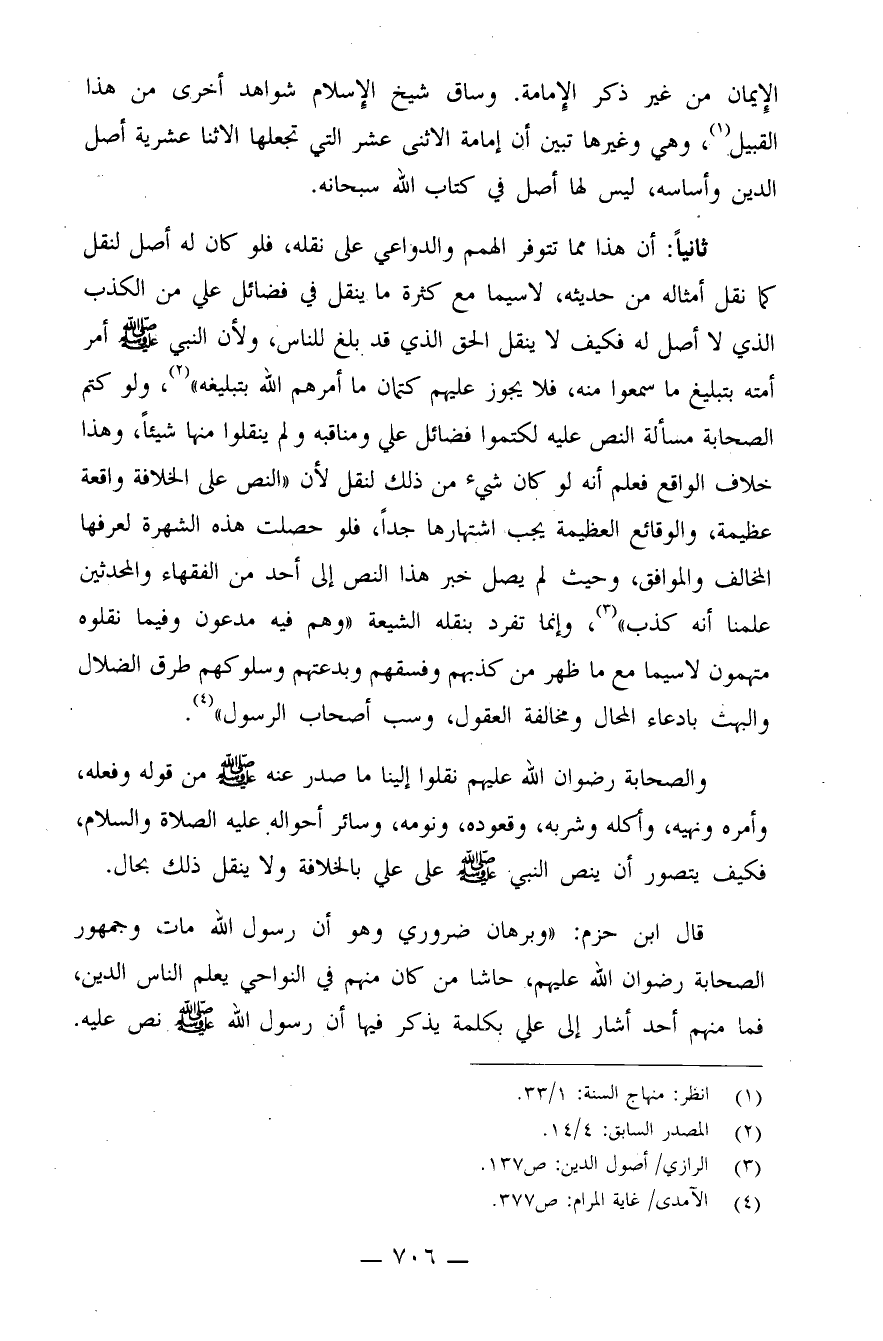 الإيمان من غير ذكر الإمامة. وساق شيخ الإسلام شواهد أخرى من هذا
القبيل(١)، وهي وغيرها تبين أن إمامة الاثنى عشر التي تجعلها الاثنا عشرية أصل
الدين وأساسه، ليس لها أصل في كتاب الله سبحانه.
ثانياً: أن هذا مما تتوفر الهمم والدواعي على نقله، فلو كان له أصل لنقل
كما نقل أمثاله من حديثه، لاسيما مع كثرة ما ينقل في فضائل علي من الكذب
الذي لا أصل له فكيف لا ينقل الحق الذي قد بلغ للناس، ولأن النبي ﷺ أمر
أمته بتبليغ ما سمعوا منه، فلا يجوز عليهم كتمان ما أمرهم الله بتبليغه»(٢)، ولو كتم
الصحابة مسألة النص عليه لكتموا فضائل علي ومناقبه ولم ينقلوا منها شيئاً، وهذا
خلاف الواقع فعلم أنه لو كان شيء من ذلك لنقل لأن «النص على الخلافة واقعة
عظيمة، والوقائع العظيمة يجب اشتهارها جداً، فلو حصلت هذه الشهرة لعرفها
المخالف والموافق، وحيث لم يصل خبر هذا النص إلى أحد من الفقهاء والمحدثين
علمنا أنه كذب»(٣)، وإنما تفرد بنقله الشيعة «وهم فيه مدعون وفيما نقلوه
متهمون لاسيما مع ما ظهر من كذبهم وفسقهم وبدعتهم وسلوكهم طرق الضلال
والبهث بادعاء المحال ومخالفة العقول، وسب أصحاب الرسول»(٤).
والصحابة رضوان الله عليهم نقلوا إلينا ما صدر عنه ﷺ من قوله وفعله،
وأمره ونهيه، وأكله وشربه، وقعوده، ونومه، وسائر أحواله عليه الصلاة والسلام،
فكيف يتصور أن ينص النبي ﷺ على علي بالخلافة ولا ينقل ذلك بحال.
قال ابن حزم: «وبرهان ضروري وهو أن رسول الله مات وجمهور
الصحابة رضوان الله عليهم، حاشا من كان منهم في النواحي يعلم الناس الدين،
فما منهم أحد أشار إلى علي بكلمة يذكر فيها أن رسول الله ﷺ نص عليه.
(١) انظر: منهاج السنة: ٣٣/١.
(٢) المصدر السابق: ١٤/٤.
(٣) الرازي/ أصول الدين: ص١٣٧.
(٤) الآمدى/ غاية المرام: ص٣٧٧.
— ٧٠٦ —